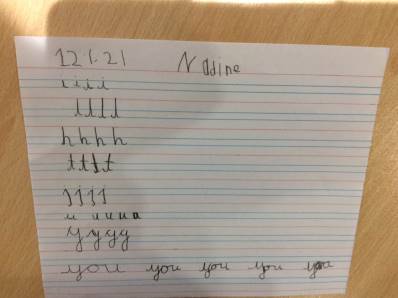 12 1.21 Nadine
i i i i
l l l l
h h h h
t t t t
j j j j
u u u u u
y y y y
you you you you you